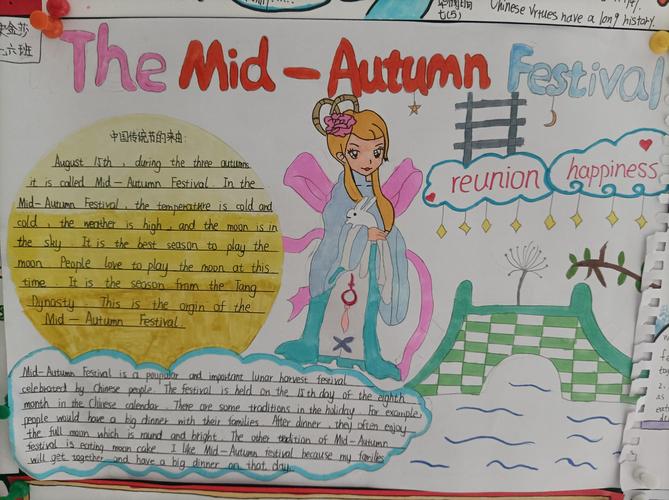 Chinese Virtues have a long history.
六班
The Mid-Autumn Festival
中国传统节的来由:
August 15th, during the three autumns
it is called Mid-Autumn Festival. In the
Mid-Autumn Festival, the temperature is cold and
cold the weather is high, and the moon is in
the sky. It is the best season to play the
moon People love to play the moon at this
time. It is the season from the Tang
Dynasty. This is the orgin of the
Mid-Autumn Festival.
reunion
happiness
Mid-Autumn Festival is a popular and important lunar harvest festival
celebrated by Chinese people. The festival is held on the 15th day of the eighth
month in the Chinese calendar. There are some traditions in the holiday. For example,
people would have a big dinner with their families. After dinner, they often enjoy
the full moon which is round and bright. The other tradition of Mid-Autumn
festival is eating moon cake. I like Mid-Autumn festival because my families
will get together and have a big dinner on that day.